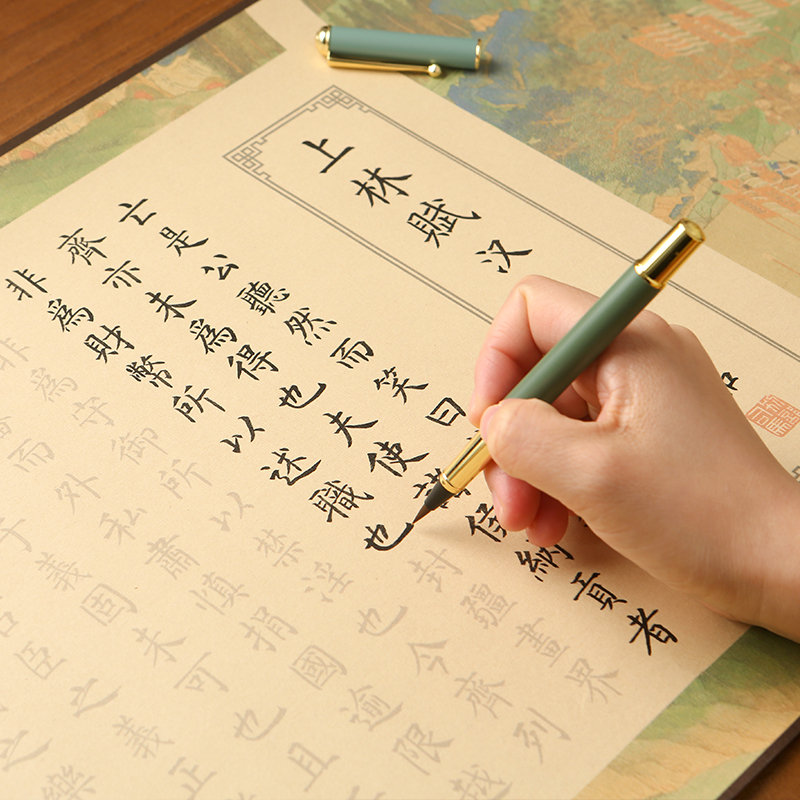 上林賦 汉
亡是公聽然而笑曰
齊亦未為得也夫使諸侯納貢者
非為財幣所以述職也封疆畫界
非為守御所以禁淫也今齊列
而外私肅慎捐國逾限越
於義固未可也且
君臣之義正
之樂